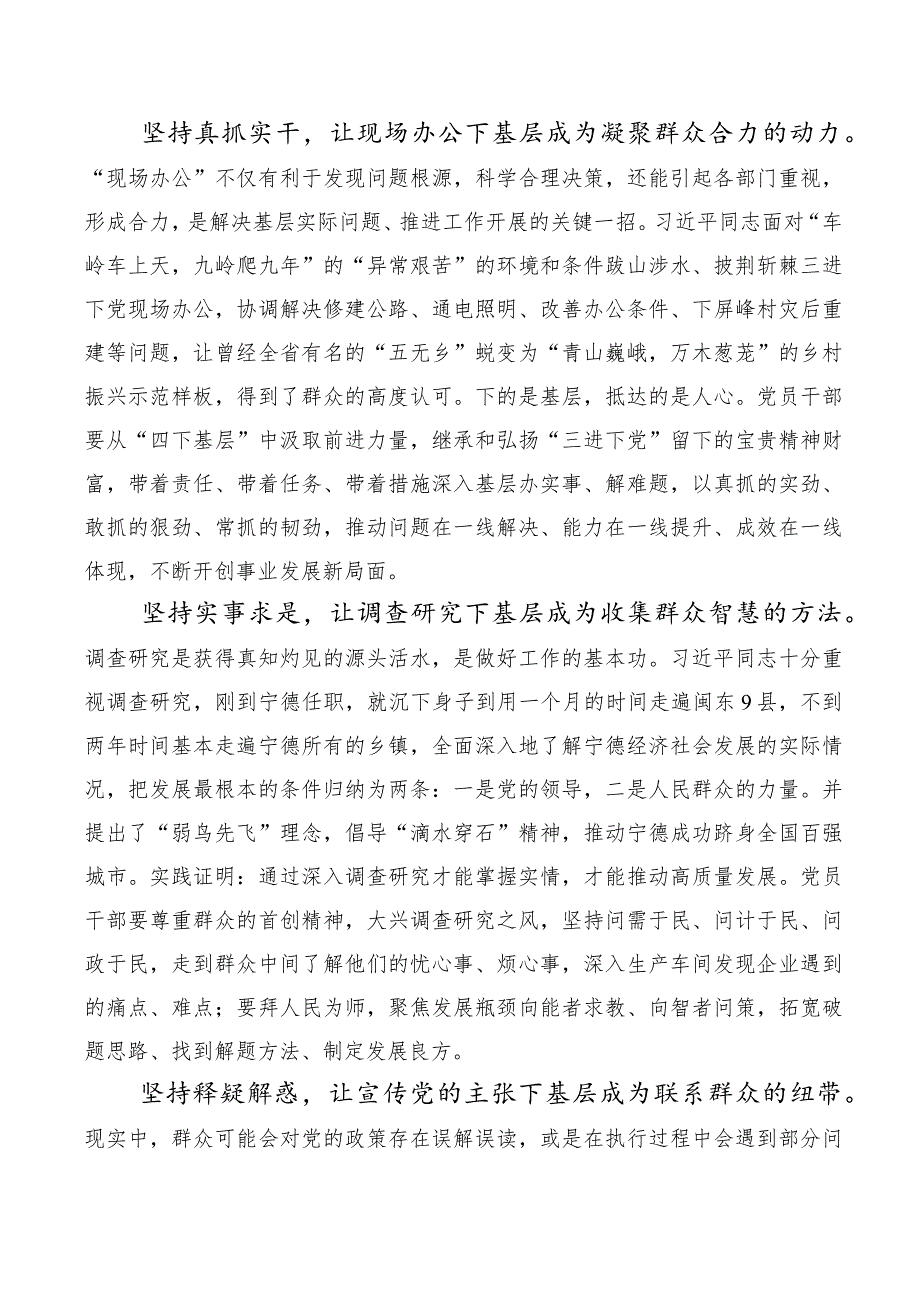 坚持真抓实干，让现场办公下基层成为凝聚群众合力的动力。
“现场办公”不仅有利于发现问题根源，科学合理决策，还能引起各部门重视，
形成合力，是解决基层实际问题、推进工作开展的关键一招。习近平同志面对“车
岭车上天，九岭爬九年”的“异常艰苦”的环境和条件跋山涉水、披荆斩棘三进
下党现场办公，协调解决修建公路、通电照明、改善办公条件、下屏峰村灾后重
建等问题，让曾经全省有名的“五无乡”蜕变为“青山巍峨，万木葱茏”的乡村
振兴示范样板，得到了群众的高度认可。下的是基层，抵达的是人心。党员干部
要从“四下基层”中汲取前进力量，继承和弘扬“三进下党”留下的宝贵精神财
富，带着责任、带着任务、带着措施深入基层办实事、解难题，以真抓的实劲、
敢抓的狠劲、常抓的韧劲，推动问题在一线解决、能力在一线提升、成效在一线
体现，不断开创事业发展新局面。
坚持实事求是，让调查研究下基层成为收集群众智慧的方法。
调查研究是获得真知灼见的源头活水，是做好工作的基本功。习近平同志十分重
视调查研究，刚到宁德任职，就沉下身子到用一个月的时间走遍闽东9县，不到
两年时间基本走遍宁德所有的乡镇，全面深入地了解宁德经济社会发展的实际情
况，把发展最根本的条件归纳为两条：一是党的领导，二是人民群众的力量。并
提出了“弱鸟先飞”理念，倡导“滴水穿石”精神，推动宁德成功跻身全国百强
城市。实践证明：通过深入调查研究才能掌握实情，才能推动高质量发展。党员
干部要尊重群众的首创精神，大兴调查研究之风，坚持问需于民、问计于民、问
政于民，走到群众中间了解他们的忧心事、烦心事，深入生产车间发现企业遇到
的痛点、难点；要拜人民为师，聚焦发展瓶颈向能者求教、向智者问策，拓宽破
题思路、找到解题方法、制定发展良方。
坚持释疑解惑，让宣传党的主张下基层成为联系群众的纽带。
现实中，群众可能会对党的政策存在误解误读，或是在执行过程中会遇到部分问